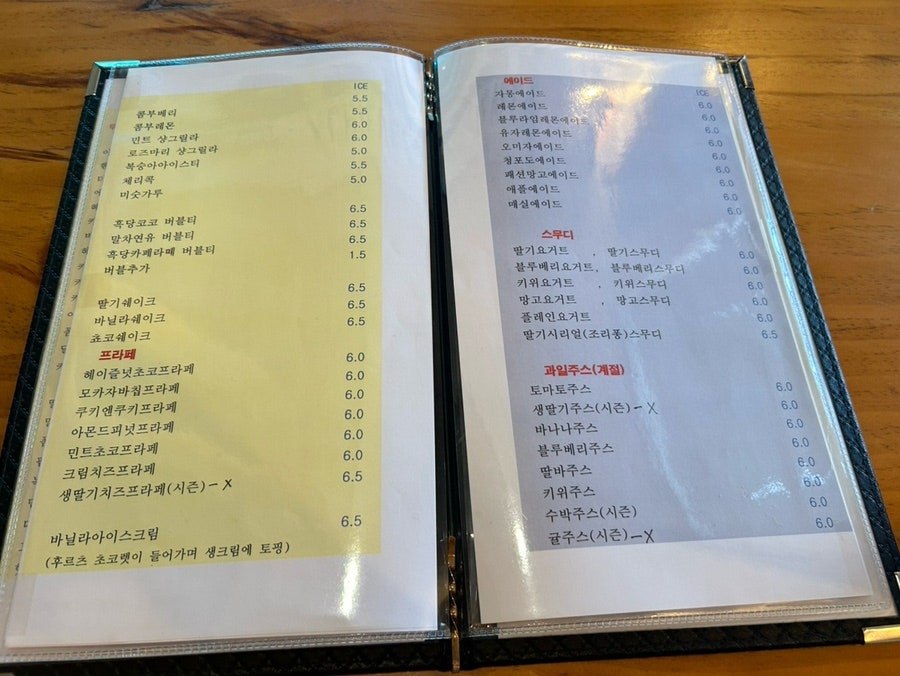 ICE
콤부베리 5.5
콤부레몬 5.5
민트 샹그릴라 6.0
로즈마리 샹그릴라 6.0
복숭아아이스티 5.0
체리콕 5.5
미숫가루 5.0
흑당코코 버블티 6.5
말차연유 버블티 6.5
흑당카페라떼 버블티 6.5
버블추가 1.5
딸기쉐이크 6.5
바닐라쉐이크 6.5
쵸코쉐이크 6.5
프라페
헤이즐넛초코프라페 6.0
모카자바칩프라페 6.0
쿠키엔쿠키프라페 6.0
아몬드피넛프라페 6.0
민트초코프라페 6.0
크림치즈프라페 6.0
생딸기치즈프라페(시즌)-X 6.5
바닐라아이스크림 6.5
(후르츠 초코렛이 들어가며 생크림에 토핑)
에이드
ICE
자몽에이드 6.0
레몬에이드 6.0
블루라임레몬에이드 6.0
유자레몬에이드 6.0
오미자에이드 6.0
청포도에이드 6.0
패션망고에이드 6.0
애플에이드 6.0
매실에이드 6.0
스무디
딸기요거트 , 딸기스무디 6.0
블루베리요거트, 블루베리스무디 6.0
키위요거트 , 키위스무디 6.0
망고요거트 , 망고스무디 6.0
플레인요거트 6.0
딸기시리얼(조리퐁)스무디 6.5
과일주스(계절)
토마토주스 6.0
생딸기주스(시즌)-X 6.0
바나나주스 6.0
블루베리주스 6.0
딸바주스 6.0
키위주스 6.0
수박주스(시즌) 6.0
귤주스(시즌)-X 6.0